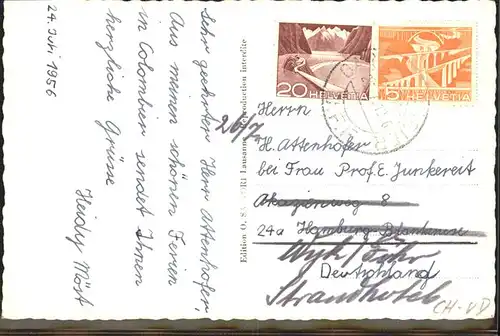 24. Juli 1956
Sehr geehrter Herr Attenhofer
Aus meinen schönen Ferien
in Colombier sendet Ihnen
herzliche Grüsse
Heidy Möst
26/7
Edition O. Lausanne Reproduction interdite
20 HELVETIA
5 HELVETIA
Herrn
H. Attenhofer
bei Frau Prof. E. Junkereit
Akazienweg 8
24a Hamburg-Blankenese
Wyk/Föhr
Deutschland
Strandhotel
CH-VD